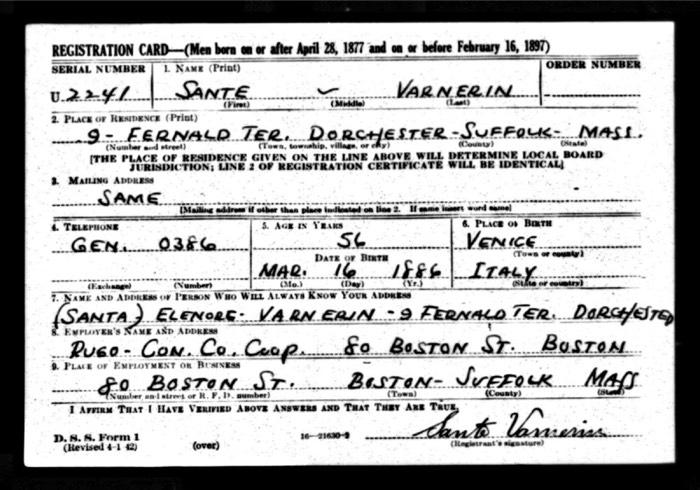 REGISTRATION CARD—(Men born on or after April 28, 1877 and on or before February 16, 1897)
SERIAL NUMBER 1. NAME (Print) ORDER NUMBER
U. 2241 SANTE VARNERIN
(First) (Middle) (Last)
2. PLACE OF RESIDENCE (Print)
9- FERNALD TER. DORCHESTER-SUFFOLK- MASS.
(Number and street) (Town, township, village, or city) (County) (State)
[THE PLACE OF RESIDENCE GIVEN ON THE LINE ABOVE WILL DETERMINE LOCAL BOARD
JURISDICTION; LINE 2 OF REGISTRATION CERTIFICATE WILL BE IDENTICAL]
3. MAILING ADDRESS
SAME
[Mailing address if other than place indicated on line 2. If same insert word same]
4. TELEPHONE 5. AGE IN YEARS 6. PLACE OF BIRTH
GEN. 0386 56 VENICE
DATE OF BIRTH (Town or county)
MAR. 16 1886 ITALY
(Exchange) (Number) (Mo.) (Day) (Yr.) (State or country)
7. NAME AND ADDRESS OF PERSON WHO WILL ALWAYS KNOW YOUR ADDRESS
(SANTA) ELENORE- VARNERIN -9 FERNALD TER. DORCHESTER
8. EMPLOYER'S NAME AND ADDRESS
RUGO- CON. CO. CORP. 80 BOSTON ST. BOSTON
9. PLACE OF EMPLOYMENT OR BUSINESS
80 BOSTON ST. BOSTON- SUFFOLK MASS
(Number and street or R. F. D. number) (Town) (County) (State)
I AFFIRM THAT I HAVE VERIFIED ABOVE ANSWERS AND THAT THEY ARE TRUE.
D. S. S. Form 1 Sante Varnerin
(Revised 4-1-42) (over) 16—21630-2 (Registrant's signature)